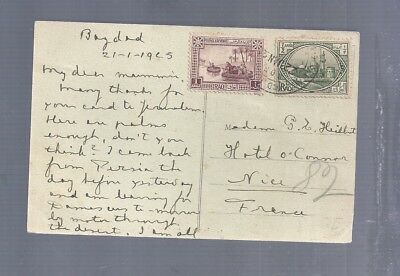 Bagdad
21-1-1925
My dear mammi.
Many thanks for
your card to Jerusalem.
Here are palms
enough, don't you
think? I came back
from Persia the
day before yesterday
and am leaving for
Damascus to-morrow
by motor through
the desert. I am all
IRAQ
IRAQ
Madame
Hotel O'Connor
Nice
France
82